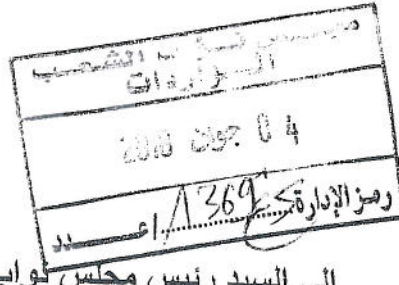 مجلس نواب الشعب
الواردات
04 جوان 2018
رمز الإدارة 1369 عدد
إلى السيد رئيس مجلس نواب